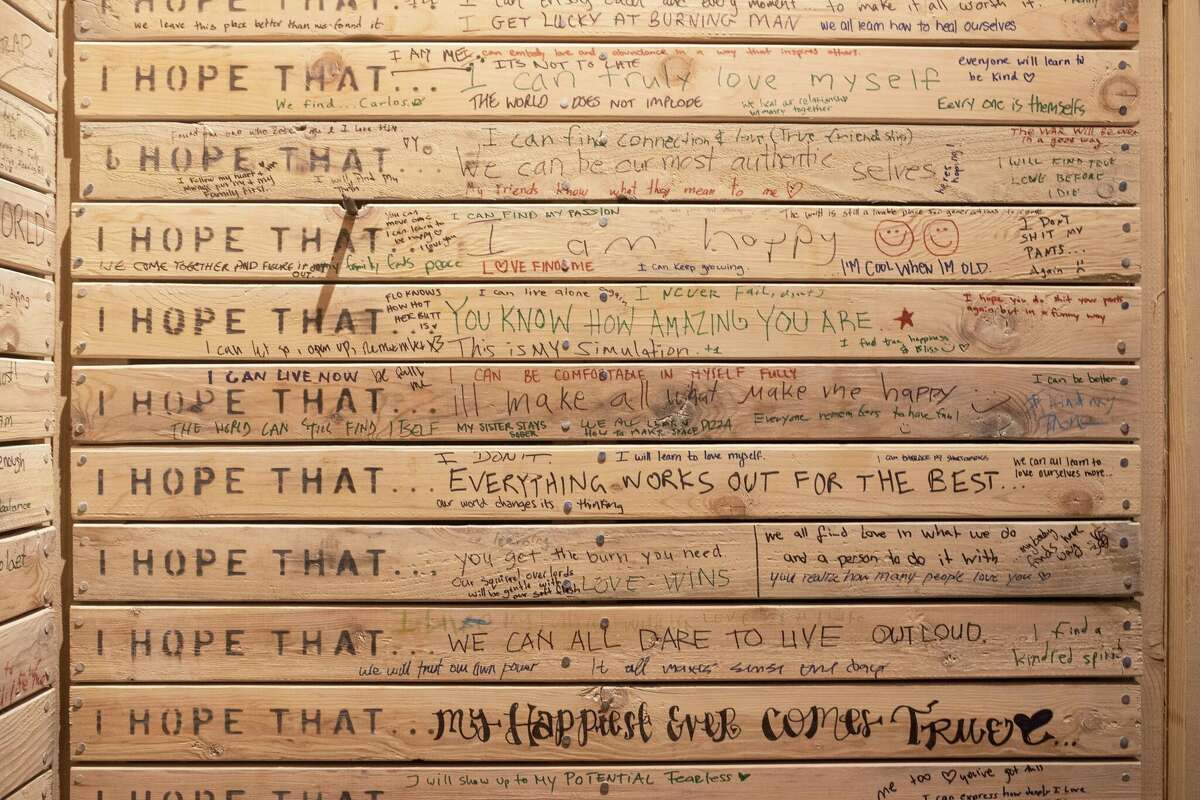 we leave this place better than we found it
I GET LUCKY AT BURNING MAN
we all learn how to heal ourselves
I AM ME.
can embody love and abundance in a way that inspires others.
ITS NOT TO LATE
everyone will learn to
be kind ♡
I HOPE THAT...
I can truly love myself
We find... Carlos
THE WORLD DOES NOT IMPLODE
Every one is themselves
I can find connection & love (True friendship)
I HOPE THAT...
We can be our most authentic selves
I follow my heart &
Family first.
I will find my
My friends know what they mean to me ♡
THE WAR WILL BE OVER
in a good way
I WILL FIND TRUE
LOVE BEFORE
I DIE
You can
I can learn to
be happy
I love you
I CAN FIND MY PASSION
The world is still a livable place for generations to come
I HOPE THAT...
I am happy
I DON'T
SHIT MY
PANTS...
Again
WE COME TOGETHER AND FIGURE IT OUT
my family finds peace
LOVE FINDS ME
I can keep growing.
I'M COOL WHEN I'M OLD.
FLO KNOWS
HOW HOT
HER BUTT
IS
I can live alone again
I NEVER FAIL,
I hope you do shit your pants
again but in a funny way
I HOPE THAT...
YOU KNOW HOW AMAZING YOU ARE
I can let go, open up, remember
This is MY Simulation. +1
I find true happiness
& Bliss
I CAN LIVE NOW
I CAN BE COMFORTABLE IN MYSELF FULLY
I can be better
I HOPE THAT...
ill make all what make me happy
THE WORLD CAN STILL FIND ITSELF
MY SISTER STAYS
SOBER
WE ALL LEARN
HOW TO MAKE SPACE PIZZA
Everyone remembers to have fun!
I find my
I DON'T.
I will learn to love myself.
we can all learn to
love ourselves more...
I HOPE THAT...
EVERYTHING WORKS OUT FOR THE BEST...
our world changes its thinking
I HOPE THAT...
you get the burn you need
Our squirrel overlords
will be gentle with
our soft flesh
LOVE WINS
we all find love in what we do
and a person to do it with
you realize how many people love you ♡
I HOPE THAT...
WE CAN ALL DARE TO LIVE OUTLOUD.
I find a
kindred spirit
we will trust our own power
It all makes sense one day
I HOPE THAT...
My Happiest Ever Comes True ♥...
I will show up to MY POTENTIAL Fearless ♥
me too ♡ you've got this
I HOPE THAT...
I can express how deeply I love